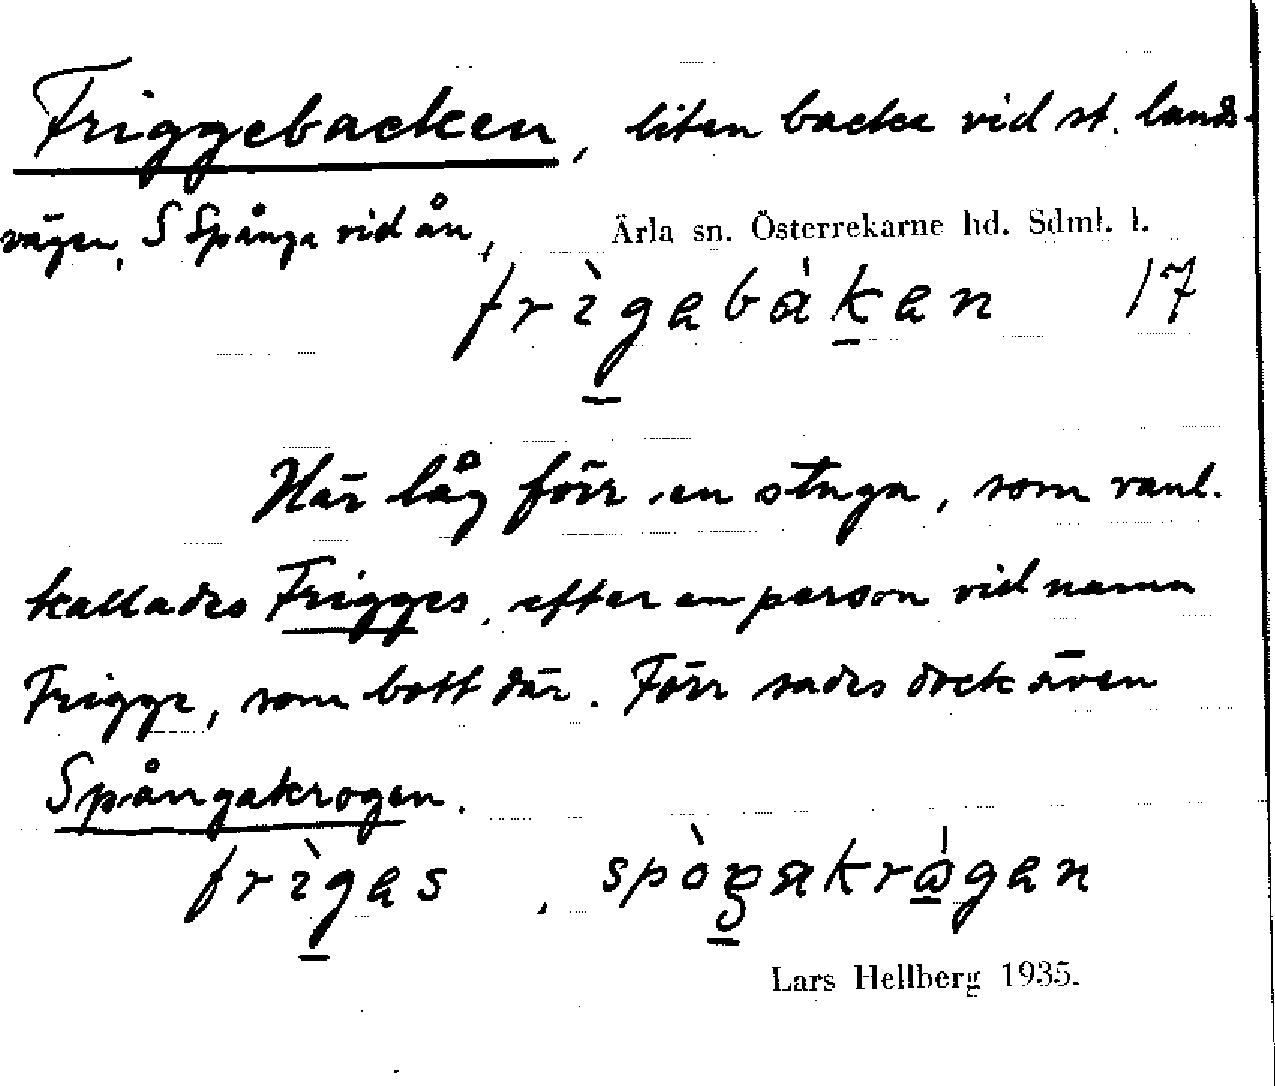 Friggebacken, liten backe vid st. lands-
vägen, S Spånga vid ån,
Ärla sn. Österrekarne hd. Sdml. l.
frìgebȧken 17
Här låg förr en stuga, som vanl.
kallades Frigges, efter en person vid namn
Frigge, som bott där. Förr sades dock även
Spångakrogen.
frìges, spòŋakrȧgen
Lars Hellberg 1935.